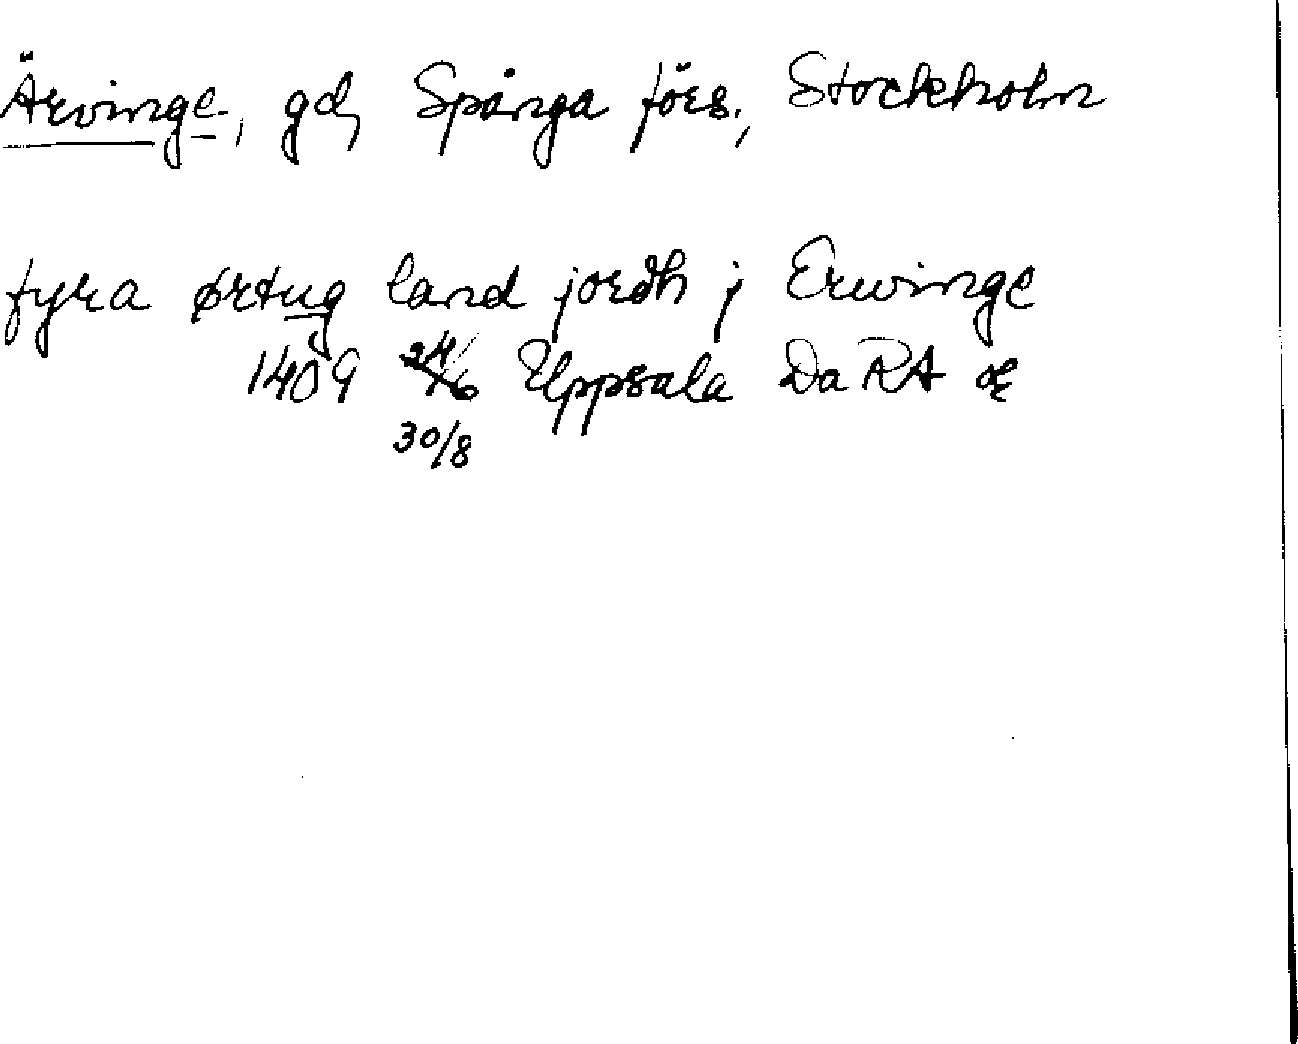 Ärvinge, gd, Spånga förs., Stockholm
fyra ørtug land jordh j Erwinge
1409 24/6 Uppsala Da RA or
30/8